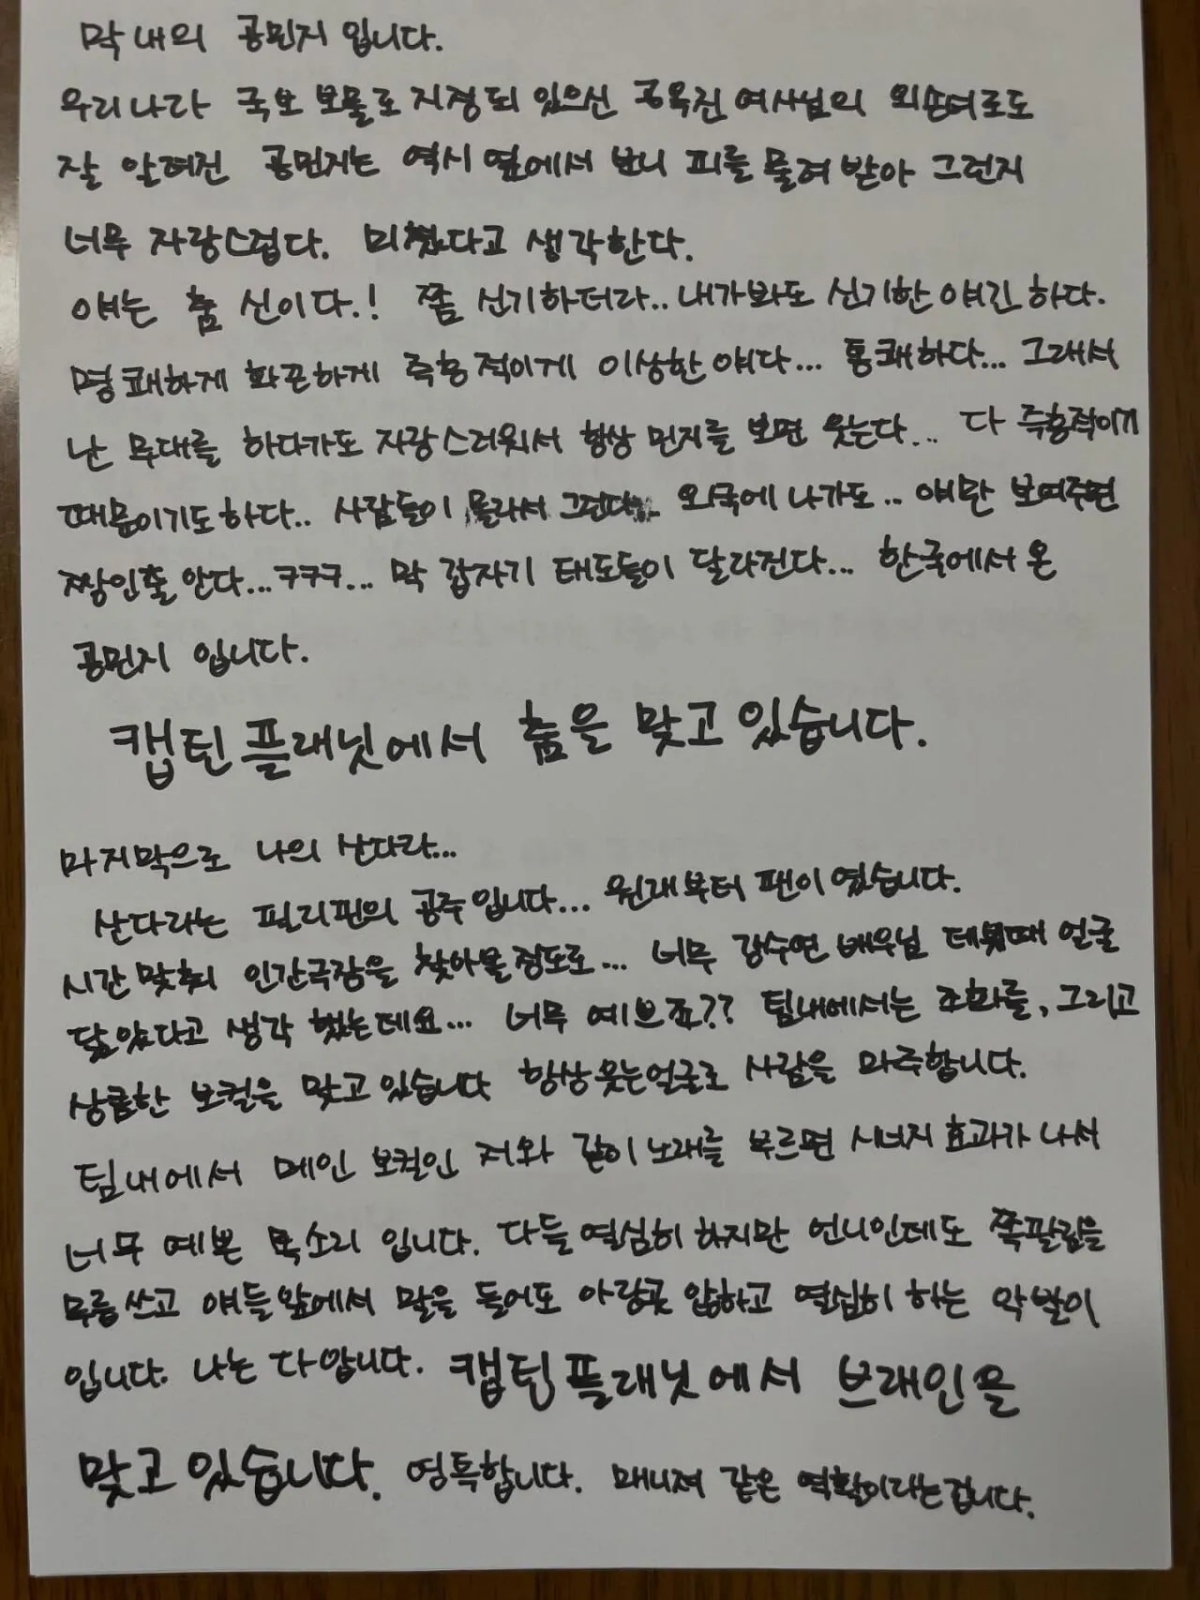 막내의 공민지 입니다.
우리나라 국보 보물로 지정되 있으신 공옥진 여사님의 외손녀로도
잘 알려진 공민지는 역시 옆에서 보니 피를 물려 받아 그런지
너무 자랑스럽다. 미쳤다고 생각한다.
얘는 춤 신이다.! 쫌 신기하더라.. 내가봐도 신기한 얘긴 하다.
명쾌하게 화끈하게 즉흥적이게 이상한 얘다... 통쾌하다... 그래서
난 무대를 하다가도 자랑스러워서 항상 민지를 보면 웃는다... 다 즉흥적이기
때문이기도하다.. 사람들이 몰라서 그런다.. 외국에 나가도.. 얘만 보여주면
짱인줄 안다...ㅋㅋㅋ... 막 갑자기 태도들이 달라진다... 한국에서 온
공민지 입니다.
캡틴플래닛에서 춤을 맞고 있습니다.
마지막으로 나의 산다라...
산다라는 필리핀의 공주입니다... 원래부터 팬이 였습니다.
시간맞춰 인간극장을 찾아볼정도로... 너무 강수연 배우님 데뷔때 얼굴
닮았다고 생각 했는데요... 너무 예쁘죠?? 팀내에서는 조화를, 그리고
상큼한 보컬을 맞고 있습니다 항상웃는얼굴로 사람을 마주합니다.
팀내에서 메인 보컬인 저와 같이 노래를 부르면 시너지 효과가 나서
너무 예쁜 목소리 입니다. 다들 열심히 하지만 언니인데도 쪽팔림을
무릅쓰고 얘들앞에서 말을 들어도 아랑곳 않하고 열심히 하는 악발이
입니다. 나는 다압니다. 캡틴플래닛에서 브레인을
맞고 있습니다. 영특합니다. 매니져 같은 역활이라는겁니다.